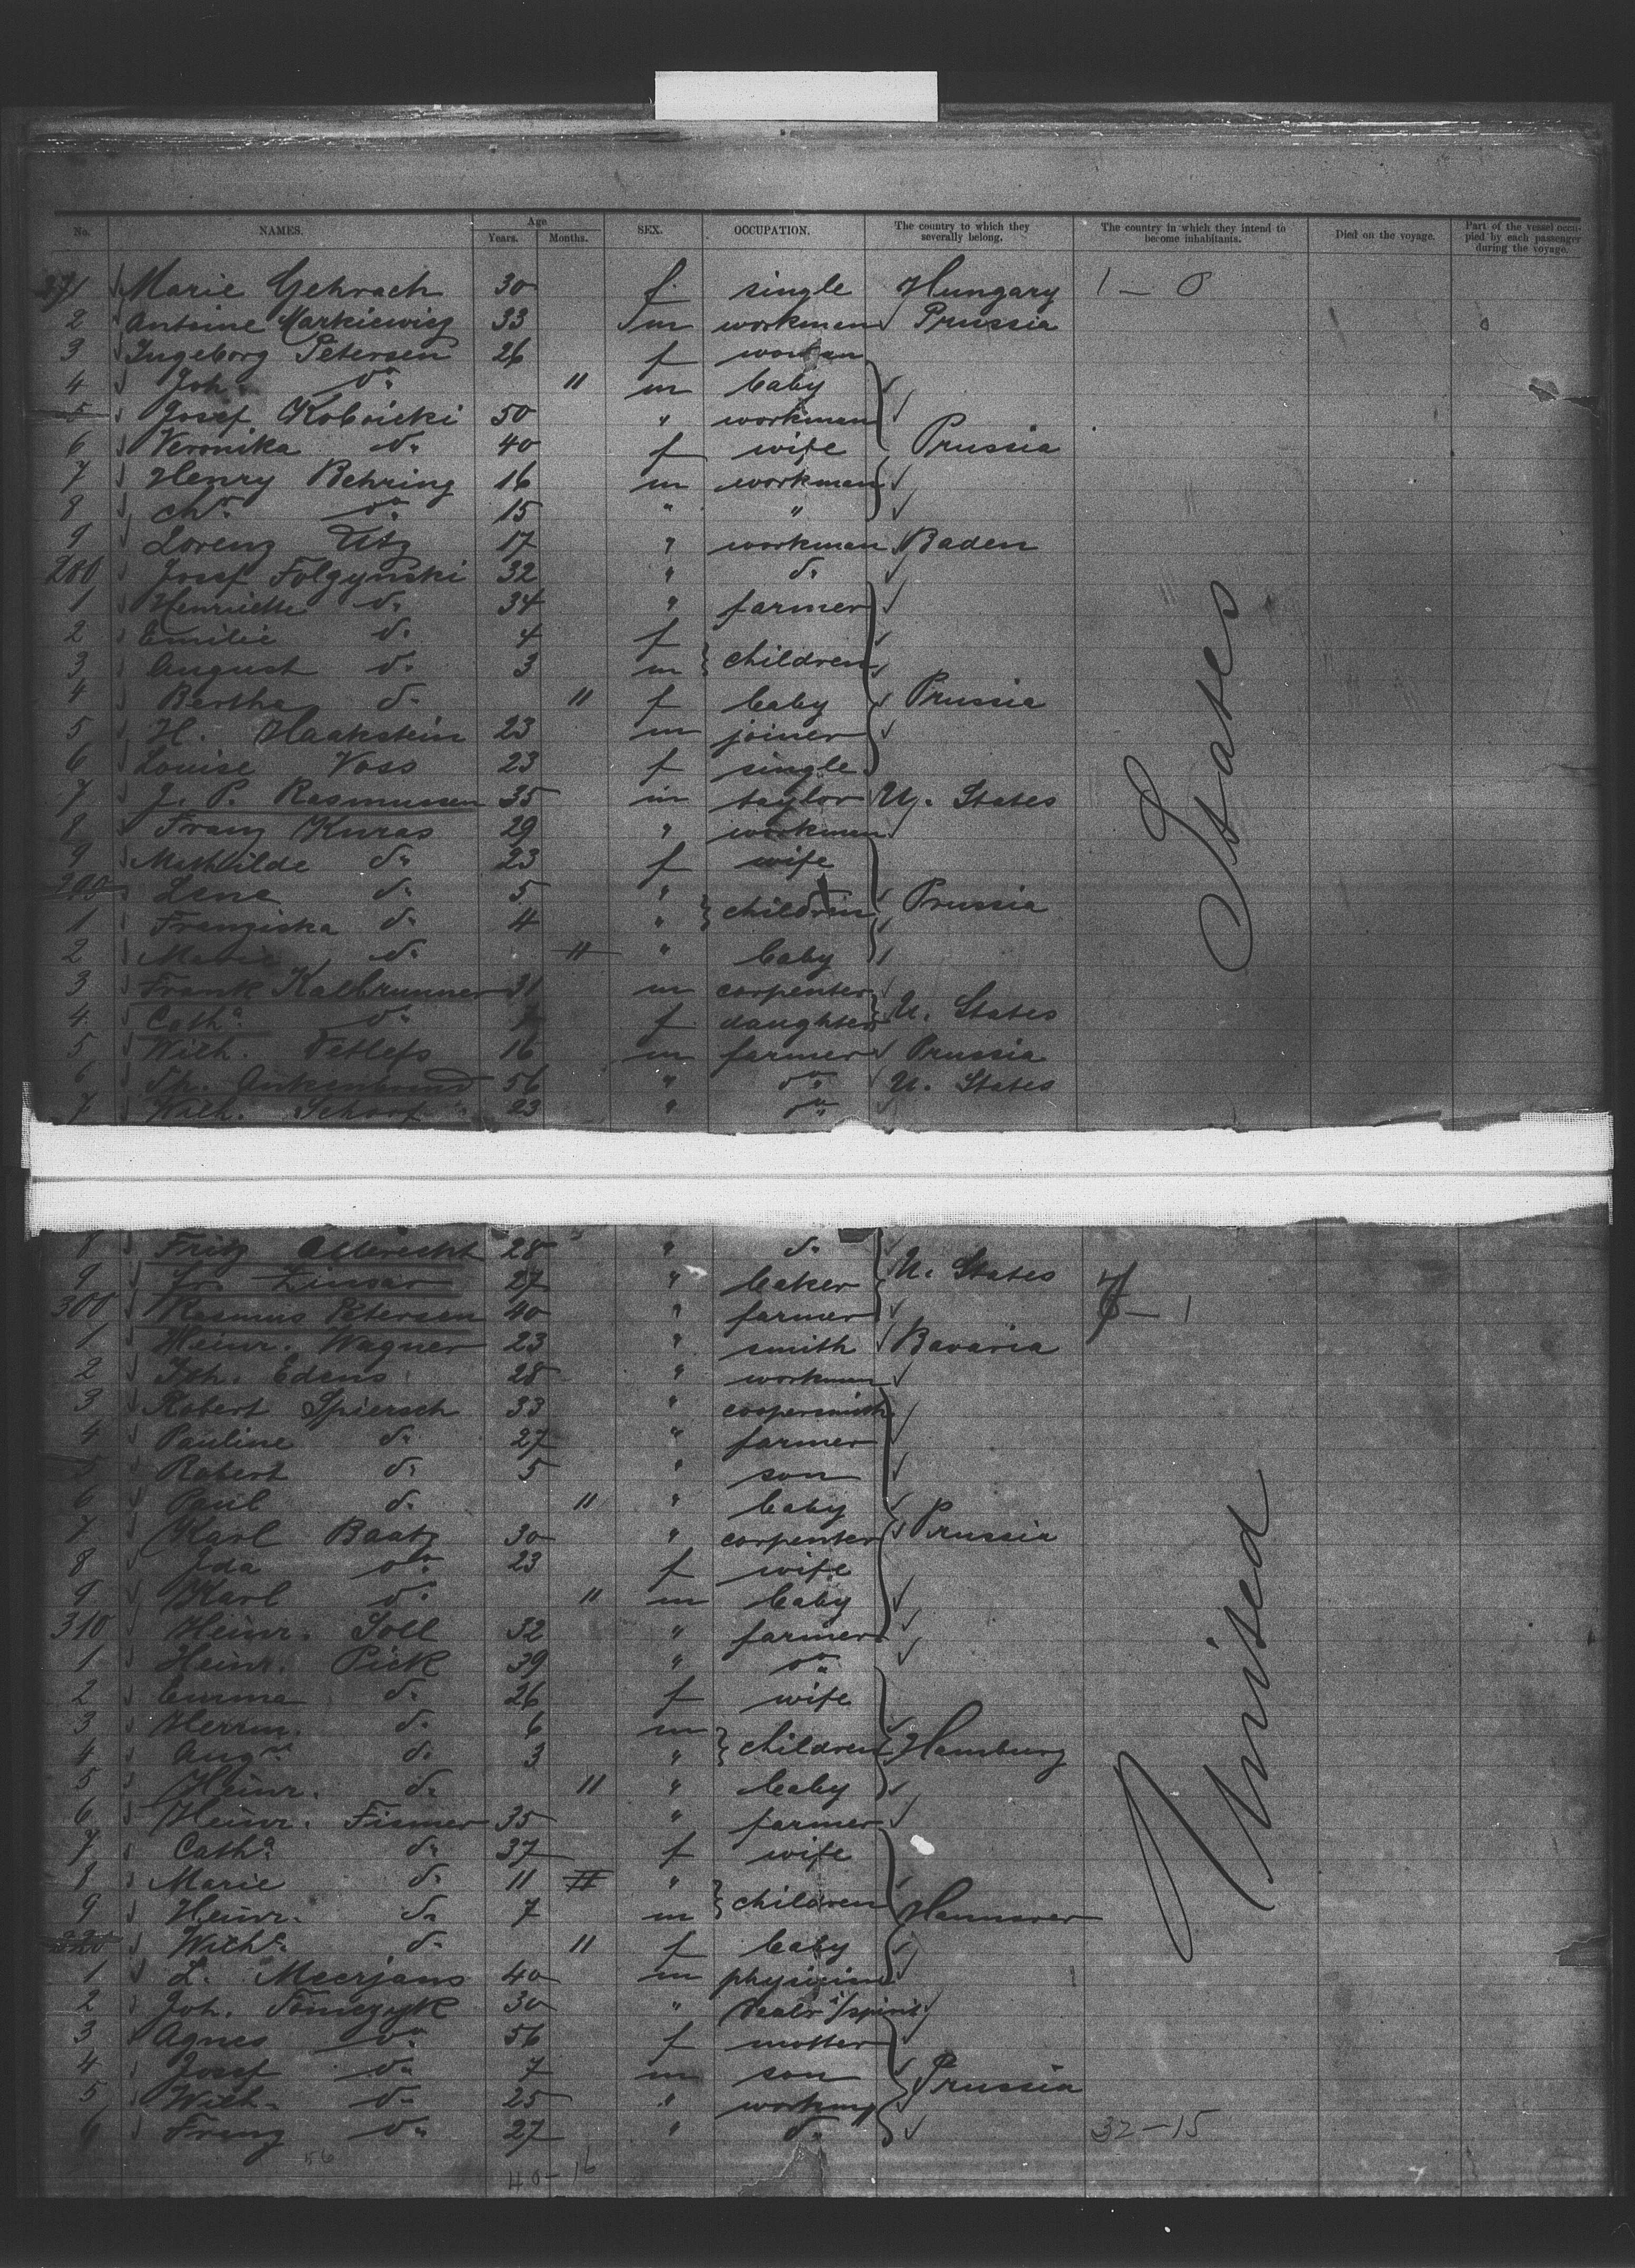 No. NAMES. Age Years. Months. SEX. OCCUPATION. The country to which they severally belong. The country in which they intend to become inhabitants. Died on the voyage. Part of the vessel occupied by each passenger during the voyage.
271 Marie Gehrach 30 f. single Hungary 1 — 0
2 Antoine Markiewisz 33 m workman Prussia
3 Ingeborg Petersen 26 f woman
4 Joh. do. 11 m baby
5 Josef 50 " workman
6 Veronika do. 40 f wife Prussia
7 Henry Behring 16 m workman
8 Chr. do. 15 " "
9 Lorenz Utz 17 " workman Baden
280 Josef Folgynski 32 " do.
1 Henriette do. 34 " farmer
2 Emilie do. 4 f
3 August do. 3 m } children
4 Bertha do. 11 f baby Prussia
5 H. Haakstein 23 m joiner
6 Louise Voss 23 f single
7 J. P. Rasmussen 35 m taylor U. States
8 Franz Kuras 29 " workman
9 Mathilde do. 23 f wife
290 Lene do. 5 "
1 Franziska do. 4 " } children Prussia
2 Marie do. 11 " baby
3 Frank Kalbrunner 31 m carpenter
4 Cath.a do. 7 f daughter U. States
5 Wilh. Detlefs 16 m farmer Prussia
6 Ankenbrand 56 " do. U. States
7 Wilh. Schorf 23 " do.
8 Fritz Albrecht 28 " do.
9 Fr. 27 " baker U. States
300 Rasmus Petersen 40 " farmer — 1
1 Heinr. Wagner 23 " smith Bavaria
2 Joh. Edens 28 " workman
3 Robert Spiersch 33 " coopersmith
4 Pauline do. 27 " farmer
5 Robert do. 5 " son
6 Paul do. 11 " baby
7 Karl Baatz 30 " carpenter Prussia
8 Ida do. 23 f wife
9 Karl do. 11 m baby
310 Heinr. Soll 32 " farmer
1 Heinr. Pick 39 " do.
2 Emma do. 26 f wife
3 Herrm. do. 6 m
4 Aug. do. 3 " } children Hamburg
5 Heinr. do. 11 " baby
6 Heinr. Fismer 35 " farmer
7 Cath.a do. 37 f wife
8 Marie do. 11 11 "
9 Heinr. do. 7 m } children Hannover
320 Wilh.e do. 11 f baby
1 L. Meerjans 40 m physician
2 Joh. Tomczyk 30 " dealr i/spirit
3 Agnes do. 56 f mother
4 Josef do. 7 m son Prussia
5 Wilh. do. 25 " workmn
6 Franz do. 27 " do. 32 – 15
56
40 – 16
United States